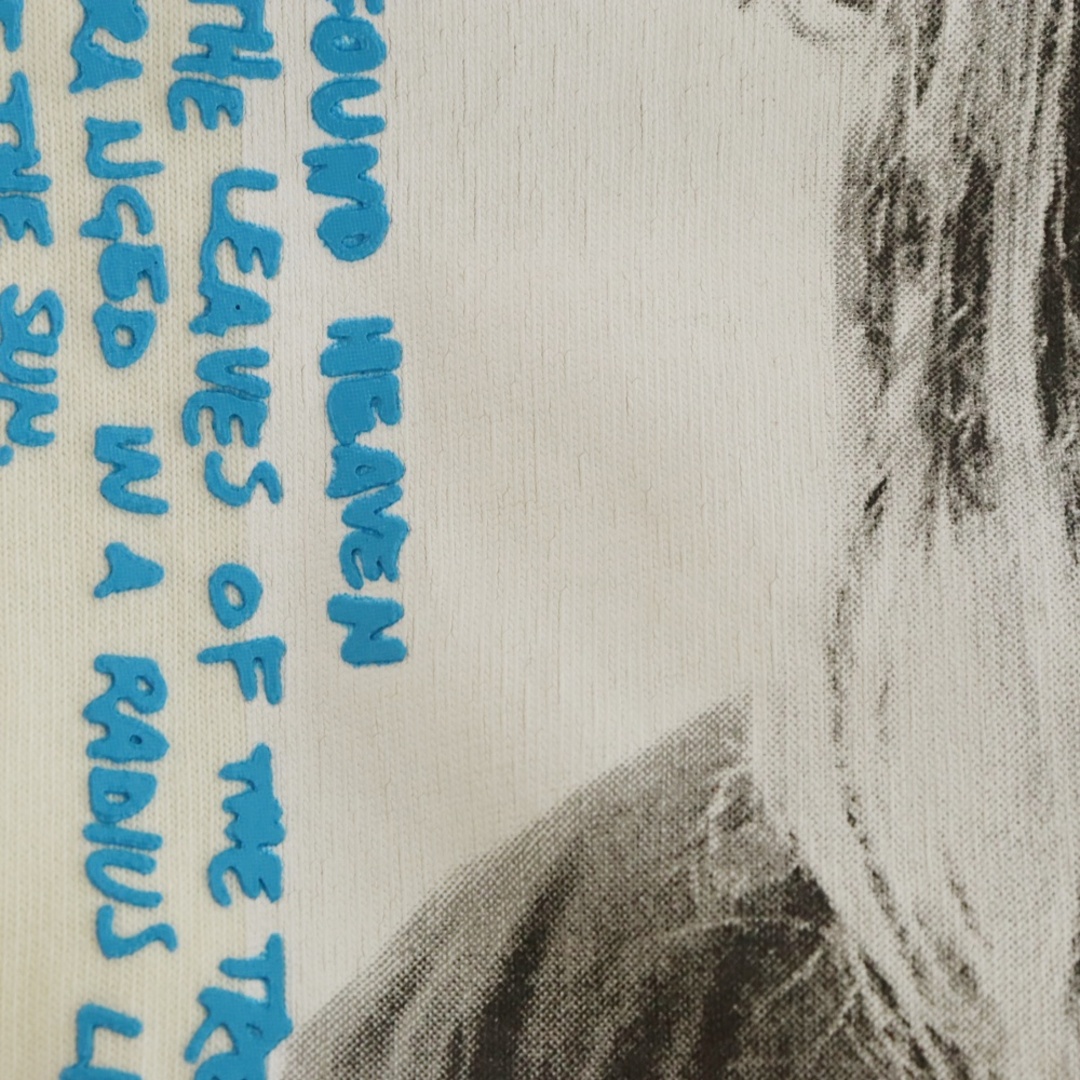 FOUND HEAVEN
THE LEAVES OF THE TRE
RANGED IN A RADIUS LI
THE SUN.